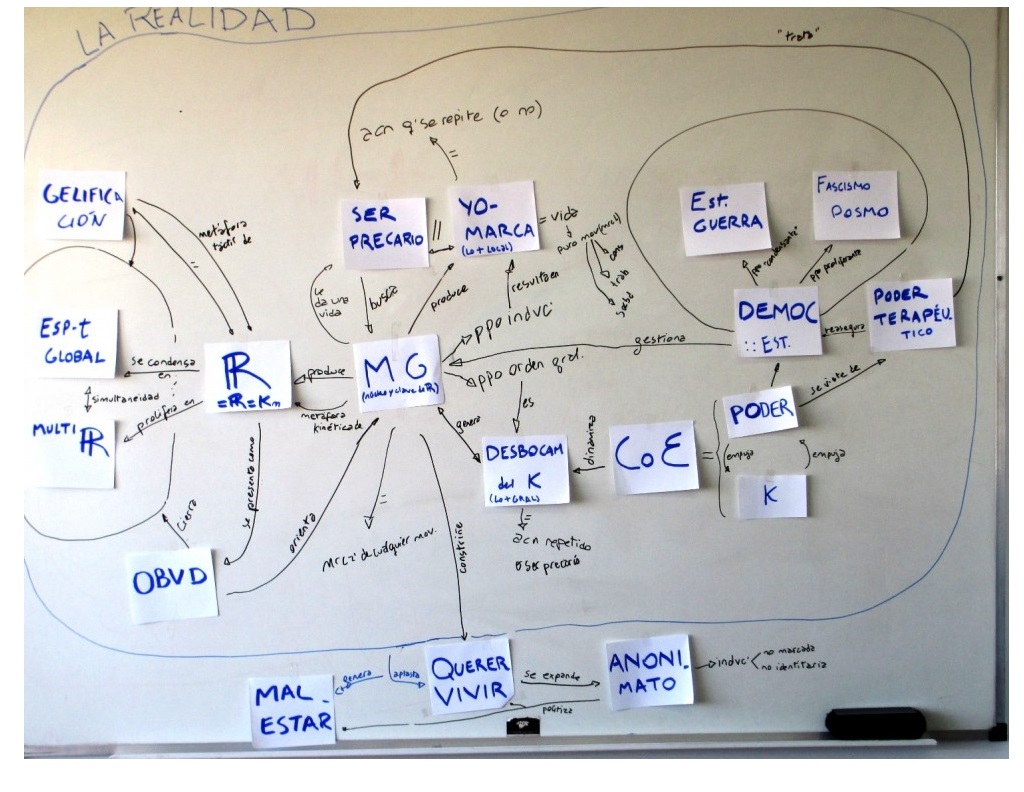 LA REALIDAD
"trata"
acn q' se repite (o no)
GELIFICA
CIÓN
metáfora
táctil de
=
SER
PRECARIO
||
YO-
MARCA
(Lo + LOCAL)
=
= vida
puro mov (mercil)
cons
trab
Est.
GUERRA
FASCISMO
POSMO
ppo "condensante"
ppo proliferante
le
da una
vida
busca
produce
resulta en
ppo indvc
DEMOC
:: EST.
reasegura
PODER
TERAPÉU
TICO
gestiona
ESP-t
GLOBAL
se condensa
en
simultaneidad
MULTI ℝ
prolifera en
ℝ
=ℝ=Km
produce
metáfora
kinética de
MG
(núcleo y clave de ℝ)
ppo orden gral.
es
genera
DESBOCAM
del K
(Lo + GRAL)
dinamiza
CoE
=
PODER
se viste de
empuja
empuja
K
se presenta como
cierra
orienta
OBVD
=
de cualquier mov.
constriñe
=
acn repetido
ser precario
MAL-
ESTAR
genera
aplasta
QUERER
VIVIR
se expande
politiza
ANONI-
MATO
indvc
no marcada
no identitaria